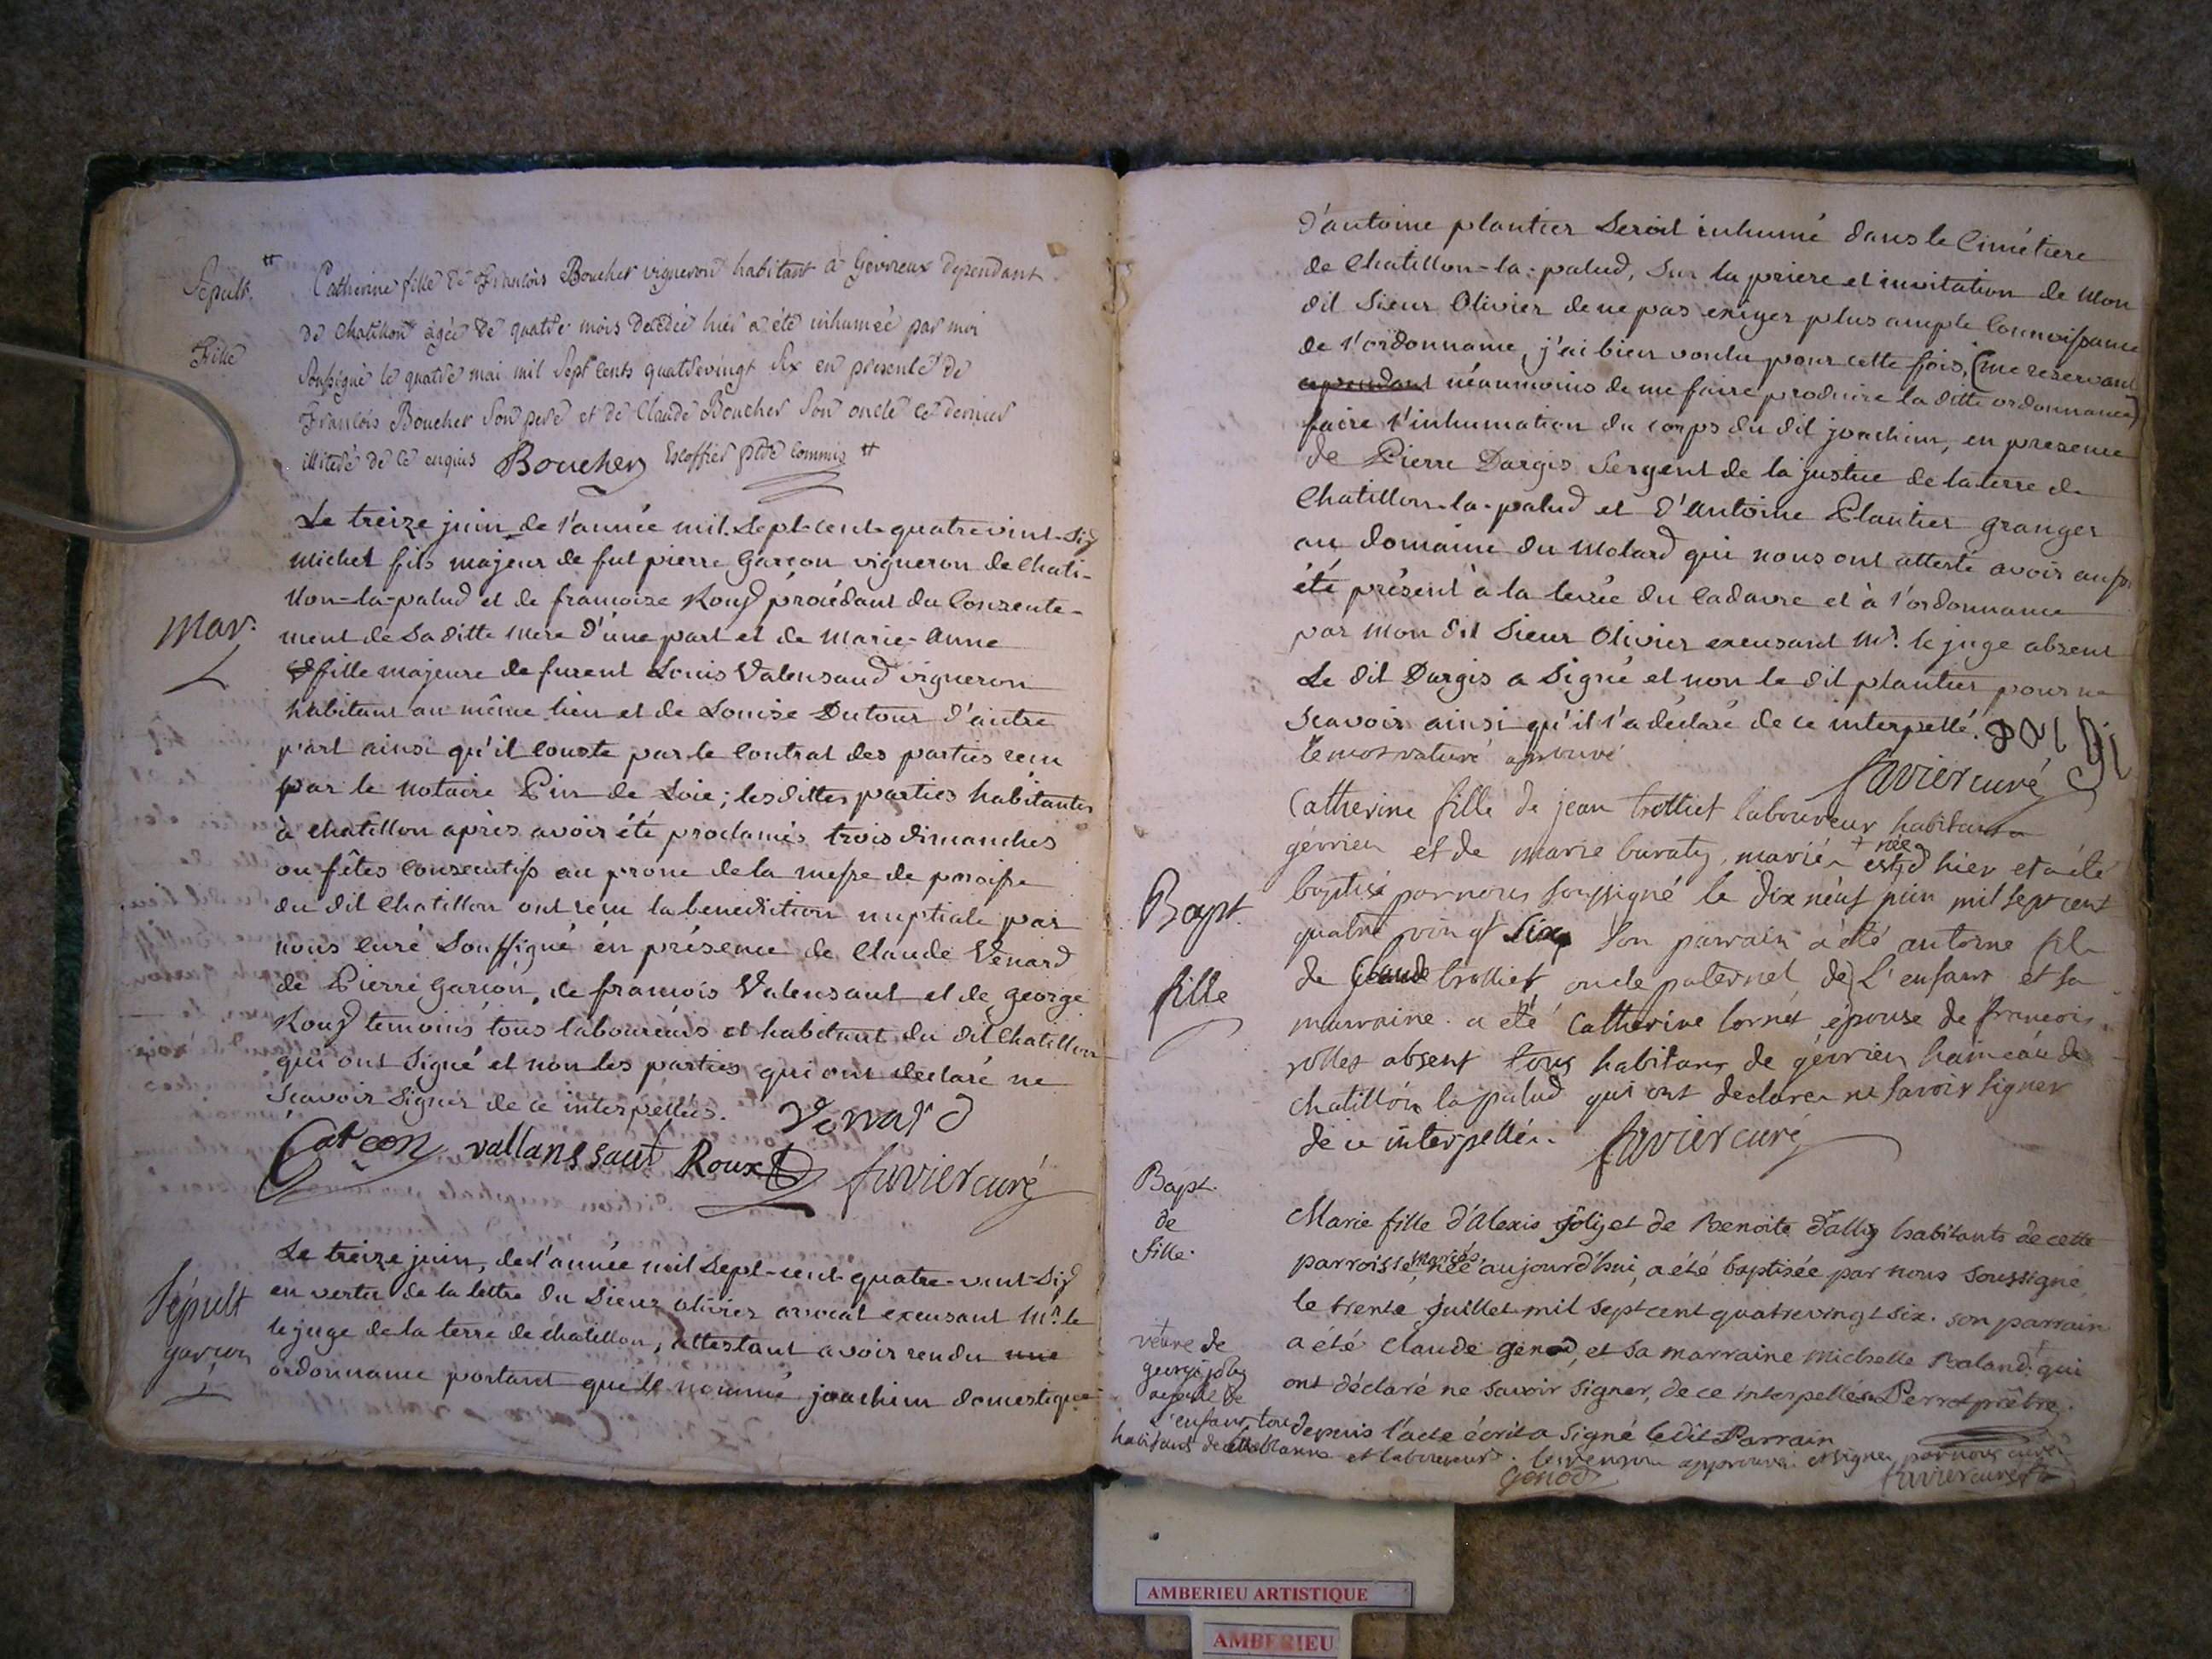 Sépult.
fille
Catherine fille de François Boucher vigneron habitant à Gevrieux dependant
de Chatillon agée de quatre mois decedée hier a été inhumée par moi
soussigné le quatre mai mil sept cents quatrevingt six en presence de
François Boucher son pere et de Claude Boucher son oncle ce dernier
illiteré de ce enquis Boucher Escoffier ptre commis
Mar.
Le treize juin de l'année mil-sept-cent-quatrevint-six
michel fils majeur de fut pierre Garçon vigneron de Chati-
llon-la-palud et de francoise Roux procédant du Consente-
ment de sa ditte mere d'une part et de Marie-Anne
fille majeure de furent Louis Valensaud vigneron
habitant au même lieu et de Louise Dutour d'autre
part ainsi qu'il conste par le contrat des parties recu
par le notaire Pin de Loie; lesdittes parties habitantes
à chatillon après avoir été proclamés trois dimanches
ou fêtes consecutifs au prone de la messe de paroisse
du dit Chatillon ont recu la benediction nuptiale par
nous curé soussigné en présence de Claude Venard
de Pierre Garçon, de francois Valensaut et de george
Roux temoins tous laboureurs et habitant du dit Chatillon
qui ont signé et non les parties qui ont declaré ne
scavoir signer de ce interpellées. Venard
Garcon vallanssaut Roux favier curé
Sépult
garcon
Le treize juin, de l'année mil sept-cent-quatre-vint-six
en vertu de la lettre du sieur olivier avocat excusant Mr. le
le juge de la terre de chatillon, attestant avoir rendu une
ordonnance portant que le nommé joachim domestique
d'antoine plantier seroit inhumé dans le Cimétiere
de Chatillon-la-palud, sur la priere et invitation de Mon
dit Sieur Olivier de ne pas exiger plus ample Connoissance
de l'ordonnance, j'ai bien voulu pour cette fois, (me reservant
cependant néanmoins de me faire produire la ditte ordonnance)
faire l'inhumation du corps du dit joachim, en presence
de Pierre Dargis Sergent de la justice de la terre de
Chatillon-la-palud et d'Antoine Plantier granger
au domaine du Molard qui nous ont atteste avoir aussi
été présent à la levée du Cadavre et à l'ordonnance
par Mon dit Sieur Olivier excusant Mr. le juge absent
Le dit Dargis a signé et non le dit plantier pour ne
scavoir ainsi qu'il l'a déclaré de ce interpellé. Dargi
le mot raturé aprouvé.
favier curé
Bapt.
fille
Catherine fille de jean trolliet laboureur habitant a
gévrieu et de marie buraty, mariés est née d'hier et a été
baptisé par nous soussigné le dix neuf juin mil sept cent
quatre vingt six son parrain a été antoine fils
de Claude trolliet oncle paternel de L'enfant et sa
marraine a été Catherine Cornet épouse de francois
rollet absent tous habitans de gévrieu hameau de
chatillon la palud qui ont declaré ne savoir signer
de ce interpellés. favier curé
Bapt.
de
fille.
Marie fille d'Alexis Joly et de Benoite Dally habitants de cette
parroisse, mariés, née aujourd'hui, a été baptisée par nous soussigné
le trente juillet mil sept cent quatrevingt six. son parrain
a été Claude genod, et sa marraine Michelle Baland qui
ont déclaré ne savoir signer, de ce interpellés Perrot prêtre.
depuis l'acte écrit a signé le dit Parrain
veuve de
george joly
ayeule de
l'enfant, tous
habitans de et laboureurs. le renvoi approuvé et signé par nous curé
genod favier curé
AMBERIEU ARTISTIQUE
AMBERIEU